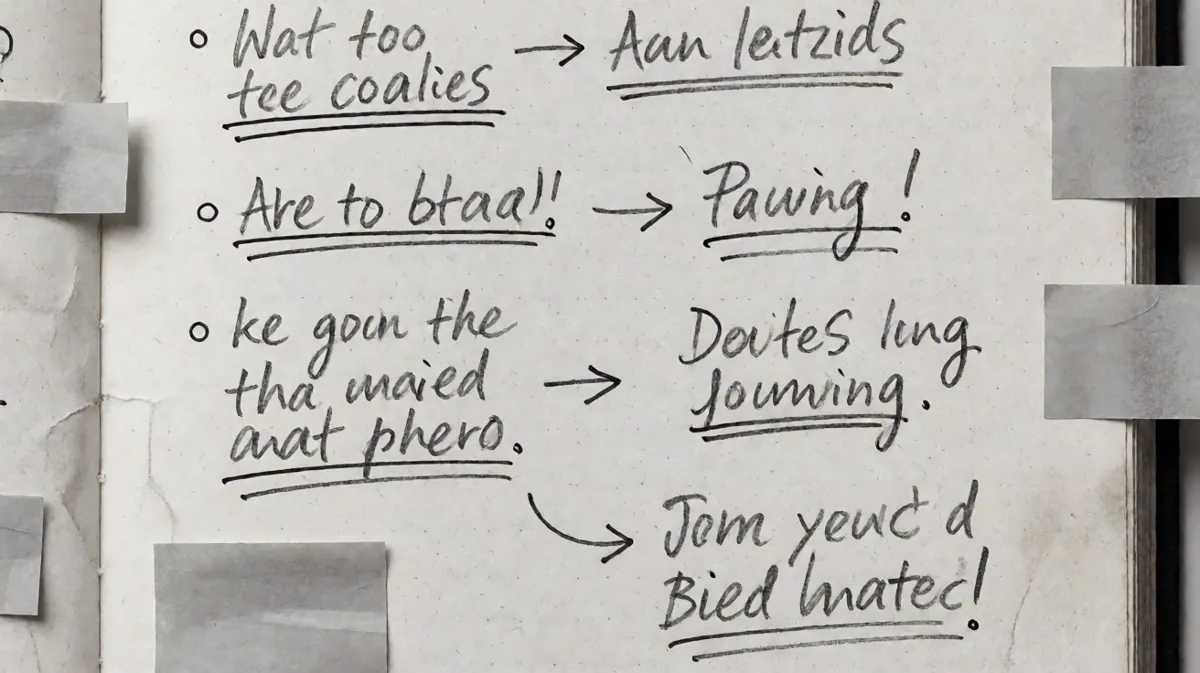 Wat too
tee coalies
→ Aan leitzids
Are to btaal!! → Pawing!
ke goun the
tha maied
anat phero.
→ Doutes lung
Joumving.
→ Jom yeuc'd
Bied lmatec!